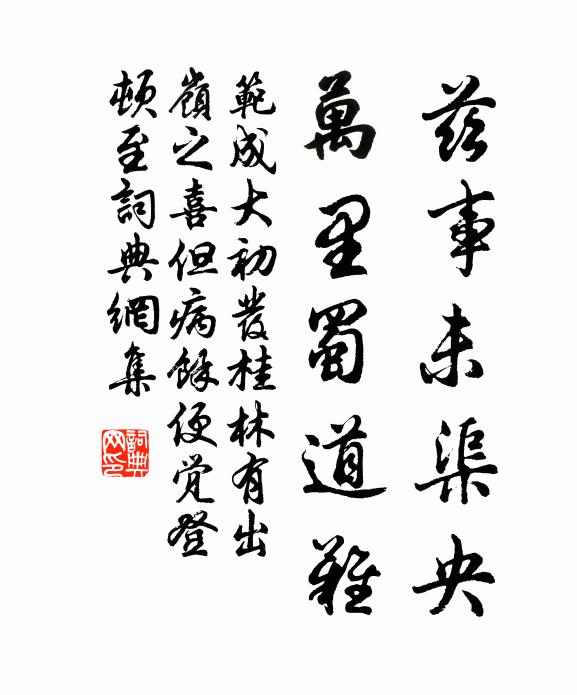 茲事未渠央
萬里蜀道難
範成大初發桂林有出
嶺之喜但病餘便覚登
頓至詞典網集
詞典网印